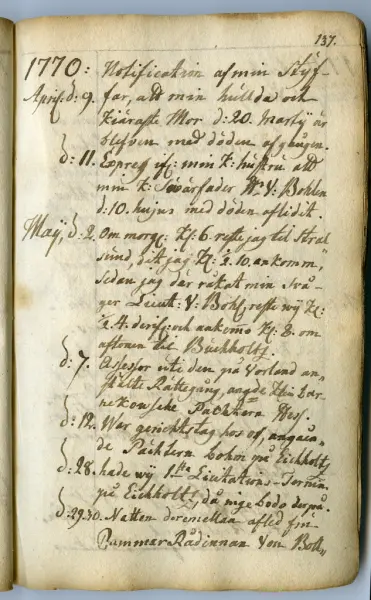 137.
1770: Notification af min Styf-
April. d: 9. far, att min hullda och
Kiäraste Mor d: 20. Martij är
blefven med döden afgången.
d: 11. Express ifr: min K: hustru att
min K: Swärfader H: V: Bohlen
d: 10. hujus med döden aflidit.
Maij, d: 2. Om morg: Kl: 6 reste jag til Stral
sund, dit jag Kl: 10. ankomm,
sedan jag där råkat min Swå-
ger Lieut: V: Bohl, reste wij Kl:
4. derifr: och ankomo Kl: 8. om
aftonen til Buchholtz.
d: 7. Assessor ute den på Vorland an-
stälte Rättegång, angde
nekowsche Pächtern Hess.
d: 12. War gerichtstag hos oss, angåen-
de Pächtern Bohm på Eichholtz
d: 28. hade wij 1sta Licitations-Termin
på Eichholtz, då inge bodo derpå.
d: 29.30. Natten deremellan afled
Cammar Rådinnan Von Boh